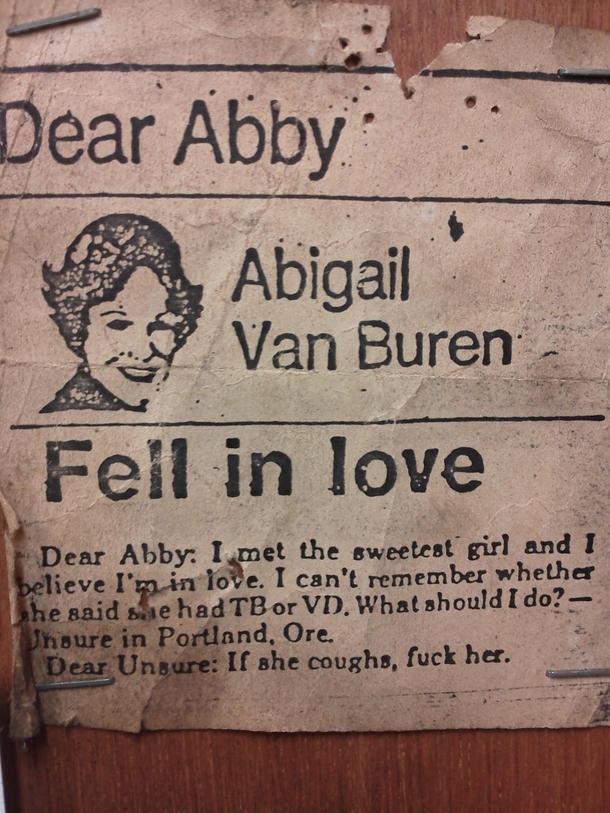 Dear Abby
Abigail
Van Buren
Fell in love
Dear Abby: I met the sweetest girl and I
believe I'm in love. I can't remember whether
she said she had TB or VD. What should I do?—
Unsure in Portland, Ore.
Dear Unsure: If she coughs, fuck her.